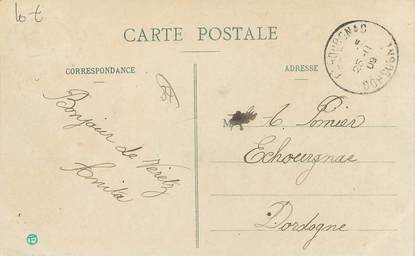 Lot
CARTE POSTALE
CORRESPONDANCE
ADRESSE
ECHOURGNAC
25-11
09
DORDOGNE
Bonjour de Veretz
Anita
M A. Pomier
Echourgnac
Dordogne